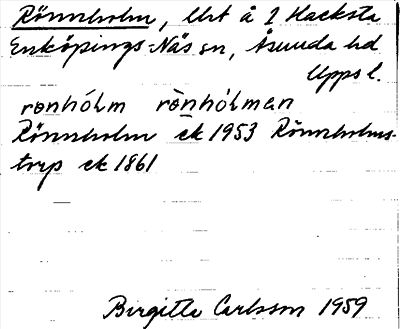 Rönnholm, lht å 1 Hacksta
Enköpings-Näs sn, Åsunda hd
Upps l.
rønhólm rø̀nhólman
Rönnholm ek 1953 Rönnholms-
torp ek 1861
Birgitta Carlsson 1959